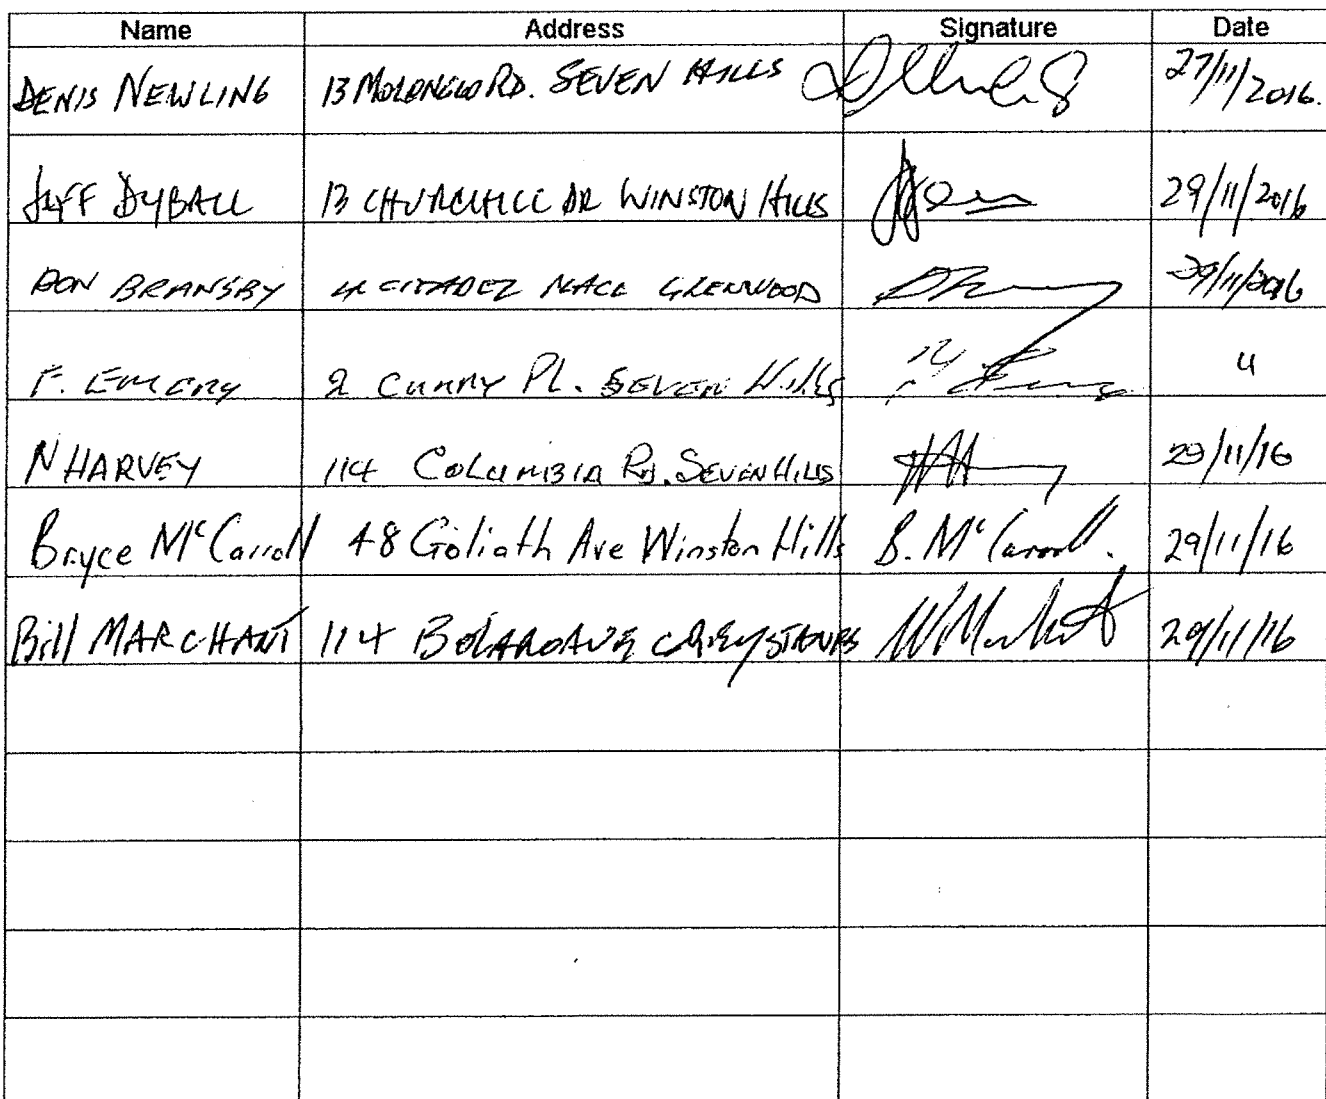 Name Address Signature Date
DENIS NEWLING 13 MOLONGLO RD. SEVEN HILLS 27/11/2016.
JEFF DYBALL 13 CHURCHILL DR WINSTON HILLS 29/11/2016
RON BRANSBY 4 CITADEL PLACE GLENWOOD 29/11/2016
F. EMERY 2 CURRY PL. SEVEN Hills "
N HARVEY 114 COLUMBIA RD. SEVEN HILLS 29/11/16
Bryce McCarroll 48 Goliath Ave Winston Hills B. McCarroll. 29/11/16
Bill MARCHANT 114 BOLARO AVE GREYSTANES 29/11/16